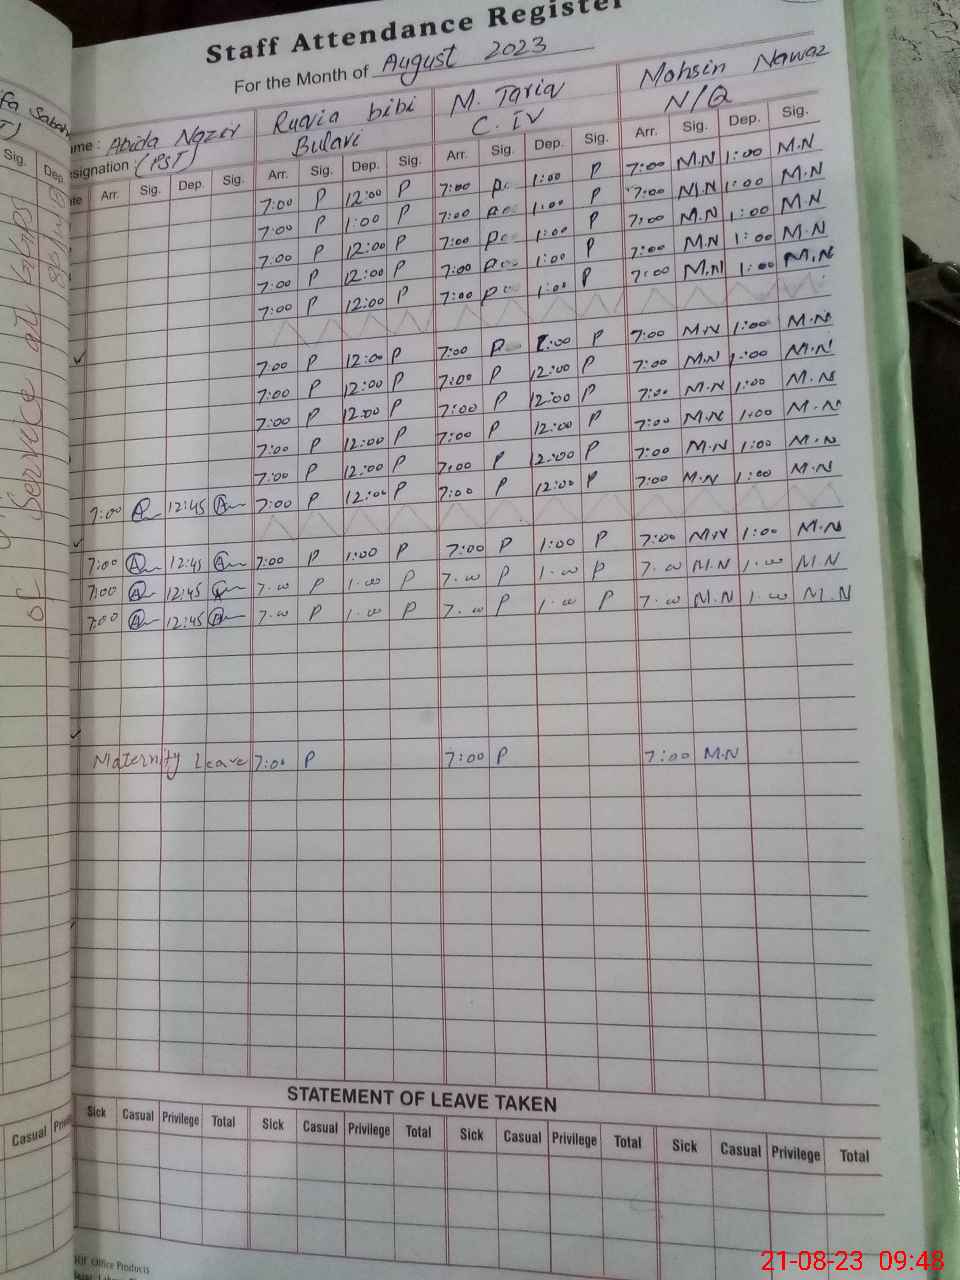 Staff Attendance Register
For the Month of August 2023
Abida Nazir Ruqia bibi M. Tariq Mohsin Nawaz
esignation (PST) Bulavi C. IV N/Q
Arr. Sig. Dep. Sig. Arr. Sig. Dep. Sig. Arr. Sig. Dep. Sig. Arr. Sig. Dep. Sig.
7:00 P 12:00 P 7:00 1:00 P 7:00 M.N 1:00 M.N
7:00 P 1:00 P 7:00 1:00 P 7:00 M.N 1:00 M.N
7:00 P 12:00 P 7:00 1:00 P 7:00 M.N 1:00 M.N
7:00 P 12:00 P 7:00 1:00 P 7:00 M.N 1:00 M.N
7:00 P 12:00 P 7:00 1:00 P 7:00 M.N 1:00 M.N
7:00 P 12:00 P 7:00 P :00 P 7:00 M.N 1:00 M.N
7:00 P 12:00 P 7:00 P 12:00 P 7:00 M.N 1:00 M.N
7:00 P 12:00 P 7:00 P 12:00 P 7:00 M.N 1:00 M.N
7:00 P 12:00 P 7:00 P 12:00 P 7:00 M.N 1:00 M.N
7:00 P 12:00 P 7:00 P 12:00 P 7:00 M.N 1:00 M.N
7:00 12:45 7:00 P 12:00 P 7:00 P 12:00 P 7:00 M.N 1:00 M.N
7:00 12:45 7:00 P 1:00 P 7:00 P 1:00 P 7:00 M.N 1:00 M.N
7:00 12:45 7.00 P 1.00 P 7.00 P 1.00 P 7.00 M.N 1.00 M.N
7:00 12:45 7.00 P 1.00 P 7.00 P 1.00 P 7.00 M.N 1.00 M.N
Maternity Leave 7:00 P 7:00 P 7:00 M.N
STATEMENT OF LEAVE TAKEN
Sick Casual Privilege Total Sick Casual Privilege Total Sick Casual Privilege Total Sick Casual Privilege Total
Office Products
Sig. Dep.
of Service at GGPS
Casual
21-08-23 09:48